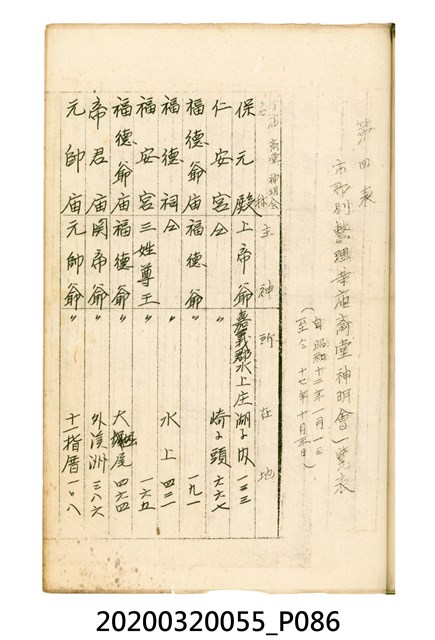 第四表
市郡別整理寺庙斋堂神明會一覽表
(自昭和十二年一月一日
至仝 十七年十月末日)
寺庙 斋堂 神明会 名 称 主神 所在地
保元殿 上帝爺 嘉義郡水上庄湖子内 一二三
仁安宮 仝 〃 崎子頭 六六七
福德爺庙 福德爺 〃 一九一
福德祠 仝 〃 水上 四三一
福安宮 三姓尊王 〃 一六五
福德爺庙 福德爺 〃 大堀尾 四六四
帝君庙 関帝爺 〃 外溪洲 三八六
元帥庙 元帥爺 〃 十一指厝 一〇八
20200320055_P086